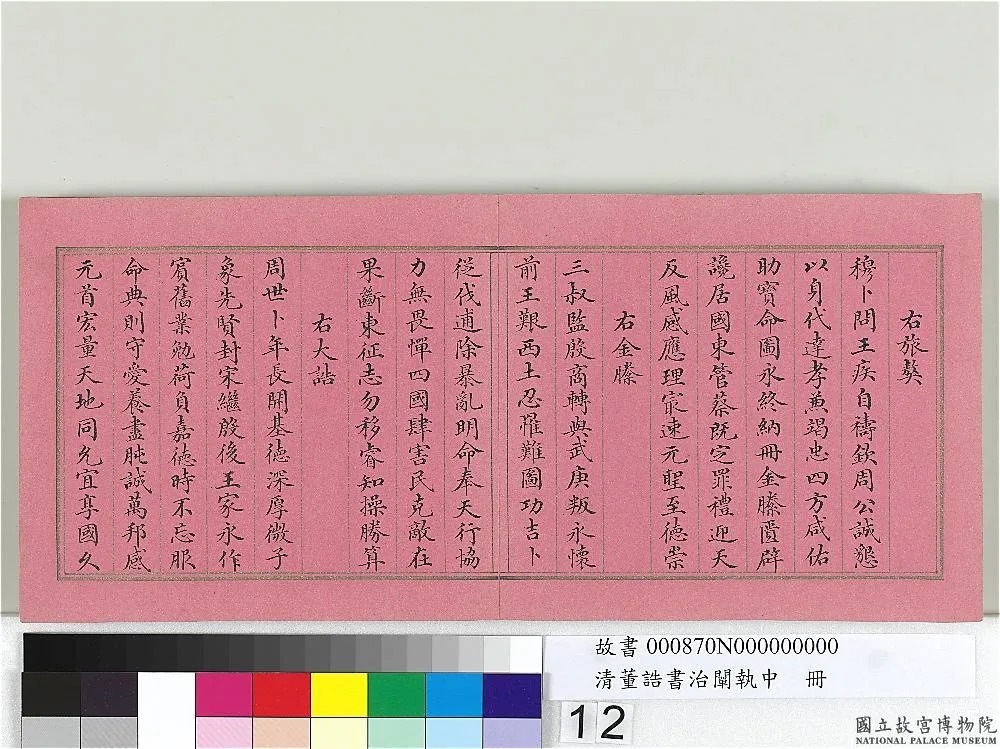 右旅獒
穆卜問王疾自禱欽周公誠懇
以身代達孝兼竭忠四方咸佑
助寶命圖永終納冊金縢匱辟
讒居國東管蔡既定罪禮迎天
反風感應理寂速元聖至德崇
右金縢
三叔監殷商轉與武庚叛永懷
前王艱西土忍罹難圖功吉卜
從伐逋除暴亂明命奉天行協
力無畏憚四國肆害民克敵在
果斷東征志勿移睿知操勝算
右大誥
周世卜年長開基德深厚微子
象先賢封宋繼殷後王家永作
賓舊業勉荷負嘉德時不忘服
命典則守愛養盡肫誠萬邦感
元首宏量天地同允宜享國久
故書 000870N000000000
清董誥書治闡執中 冊
12
國立故宮博物院
NATIONAL PALACE MUSEUM